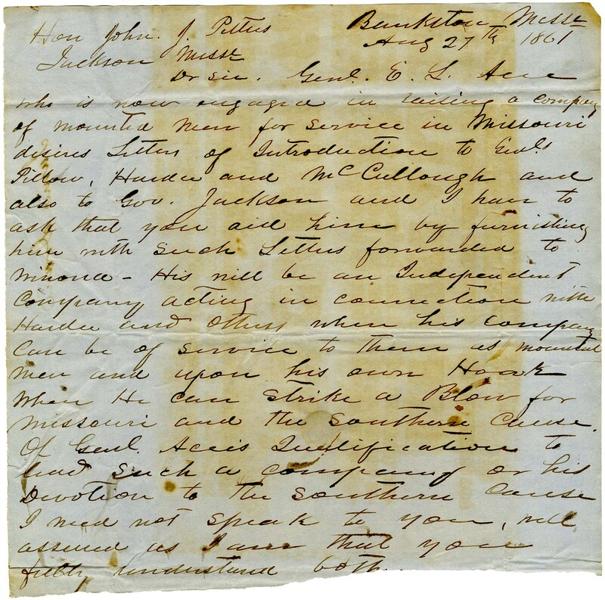 Bankston Missi
Hon John. J. Pettus Aug 27th 1861
Jackson Missi
Dr Sir. Genl. E. L. Acee
who is now engaged in raising a company
of mounted men for service in Missouri
desires Letters of Introduction to Genls
Pillow, Hardee and McCullough and
also to Gov. Jackson and I have to
ask that you aid him by furnishing
him with Such Letters forwarded to
Winona - His will be an Independent
Company acting in connection with
Hardee and others when his company
can be of service to them as mounted
men and upon his own Hook
when He can Strike a Blow for
Missouri and the Southern Cause.
Of Genl. Acee's Qualification to
lead Such a company or his
Devotion to the Southern Cause
I need not speak to you, well
assured as I am that you
fully understand both.